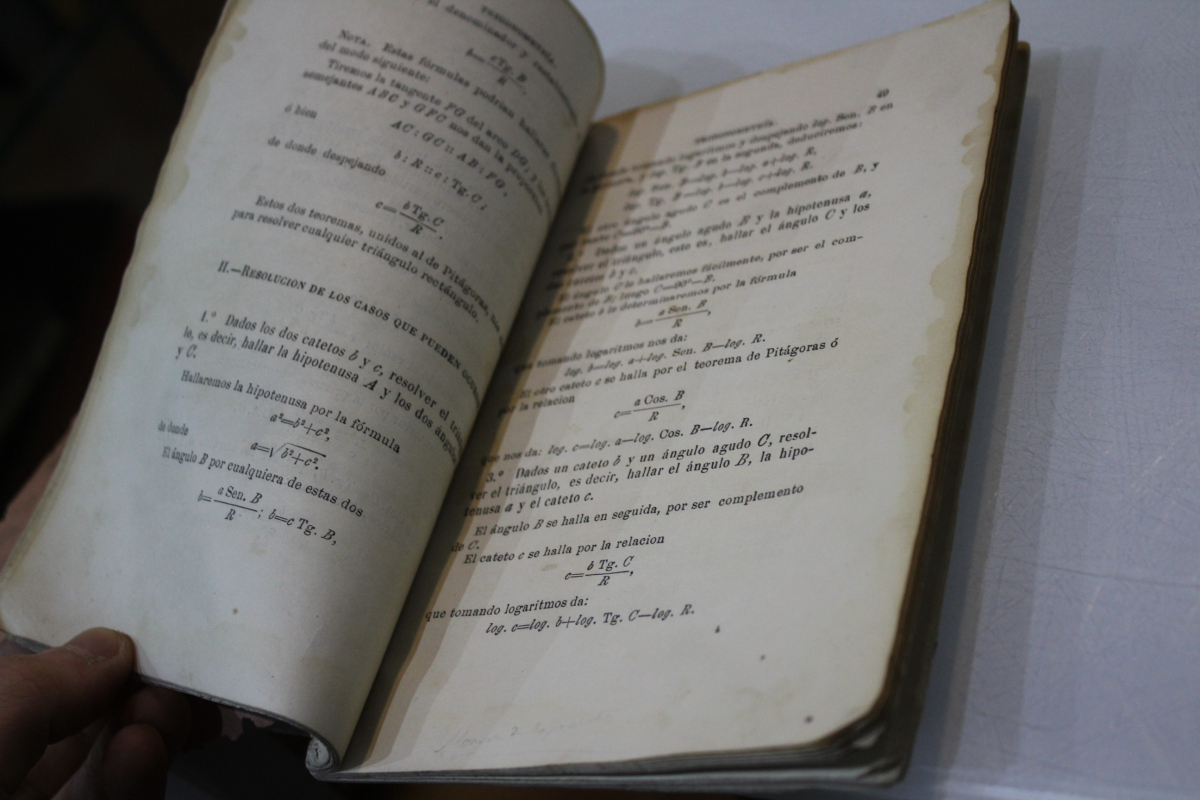 TRIGONOMETRÍA.
el denominador y
b=c Tg. B/R,
NOTA. Estas fórmulas podrian hallarse
del modo siguiente:
Tiremos la tangente FG del arco DG; y los
semejantes ABC y GFC nos dan la proporcion
AC : GC :: AB : FG,
ó bien
b : R :: c : Tg. C;
de donde despejando
c=b Tg. C/R.
Estos dos teoremas, unidos al de Pitágoras, nos
para resolver cualquier triángulo rectángulo.
II.—RESOLUCION DE LOS CASOS QUE PUEDEN
1.° Dados los dos catetos b y c, resolver el
lo, es decir, hallar la hipotenusa A y los dos
y C.
Hallaremos la hipotenusa por la fórmula
a²=b²+c²,
de donde
a=√b²+c².
El ángulo B por cualquiera de estas dos
b=a Sen. B/R; b=c Tg. B,
49
TRIGONOMETRÍA.
tomando logaritmos y despejando log. Sen. B en
y log. Tg. B en la segunda, deduciremos:
log. Sen. B=log. b—log. a+log. R,
log. Tg. B=log. b—log. c+log. R.
El otro ángulo agudo C es el complemento de B, y
C=90°—B.
2.° Dados un ángulo agudo B y la hipotenusa a,
resolver el triángulo, esto es, hallar el ángulo C y los
b y c.
El ángulo C lo hallaremos fácilmente, por ser el com-
plemento de B; luego C=90°—B.
El cateto b le determinaremos por la fórmula
b=a Sen. B/R,
que tomando logaritmos nos da:
log. b=log. a+log. Sen. B—log. R.
El otro cateto c se halla por el teorema de Pitágoras ó
por la relacion
c=a Cos. B/R,
que nos da: log. c=log. a—log. Cos. B—log. R.
3.° Dados un cateto b y un ángulo agudo C, resol-
ver el triángulo, es decir, hallar el ángulo B, la hipo-
tenusa a y el cateto c.
El ángulo B se halla en seguida, por ser complemento
de C.
El cateto c se halla por la relacion
c=b Tg. C/R,
que tomando logaritmos da:
log. c=log. b+log. Tg. C—log. R.
4